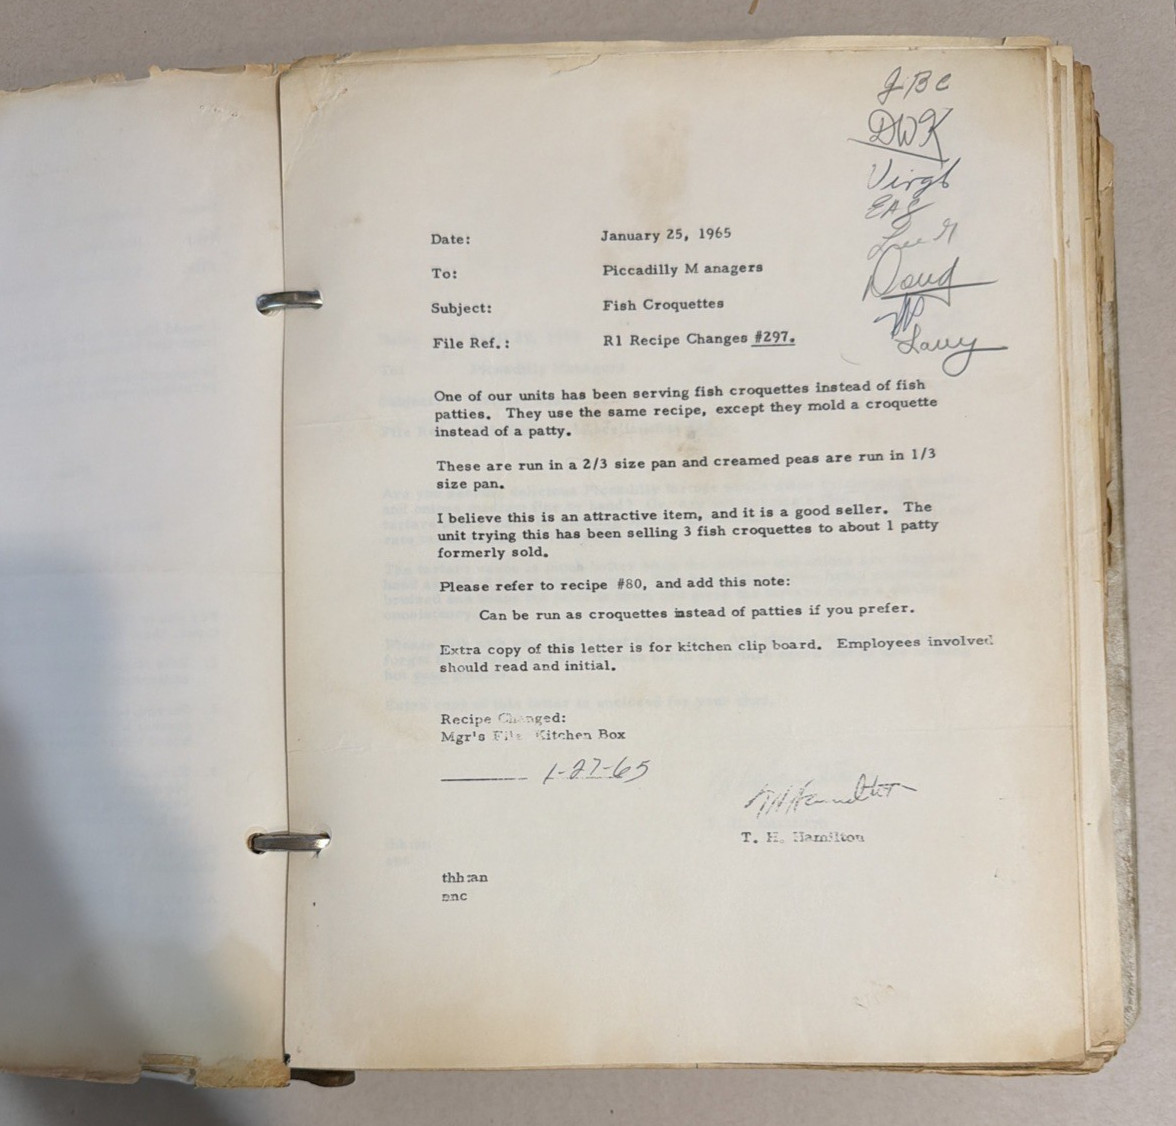 JBC
DWK
Virgb
EAS
Doug
Larry
Date: January 25, 1965
To: Piccadilly M anagers
Subject: Fish Croquettes
File Ref.: R1 Recipe Changes #297.
One of our units has been serving fish croquettes instead of fish
patties. They use the same recipe, except they mold a croquette
instead of a patty.
These are run in a 2/3 size pan and creamed peas are run in 1/3
size pan.
I believe this is an attractive item, and it is a good seller. The
unit trying this has been selling 3 fish croquettes to about 1 patty
formerly sold.
Please refer to recipe #80, and add this note:
Can be run as croquettes instead of patties if you prefer.
Extra copy of this letter is for kitchen clip board. Employees involved
should read and initial.
Recipe Changed:
Mgr's File Kitchen Box
1-27-65
T. H. Hamilton
thh:an
enc